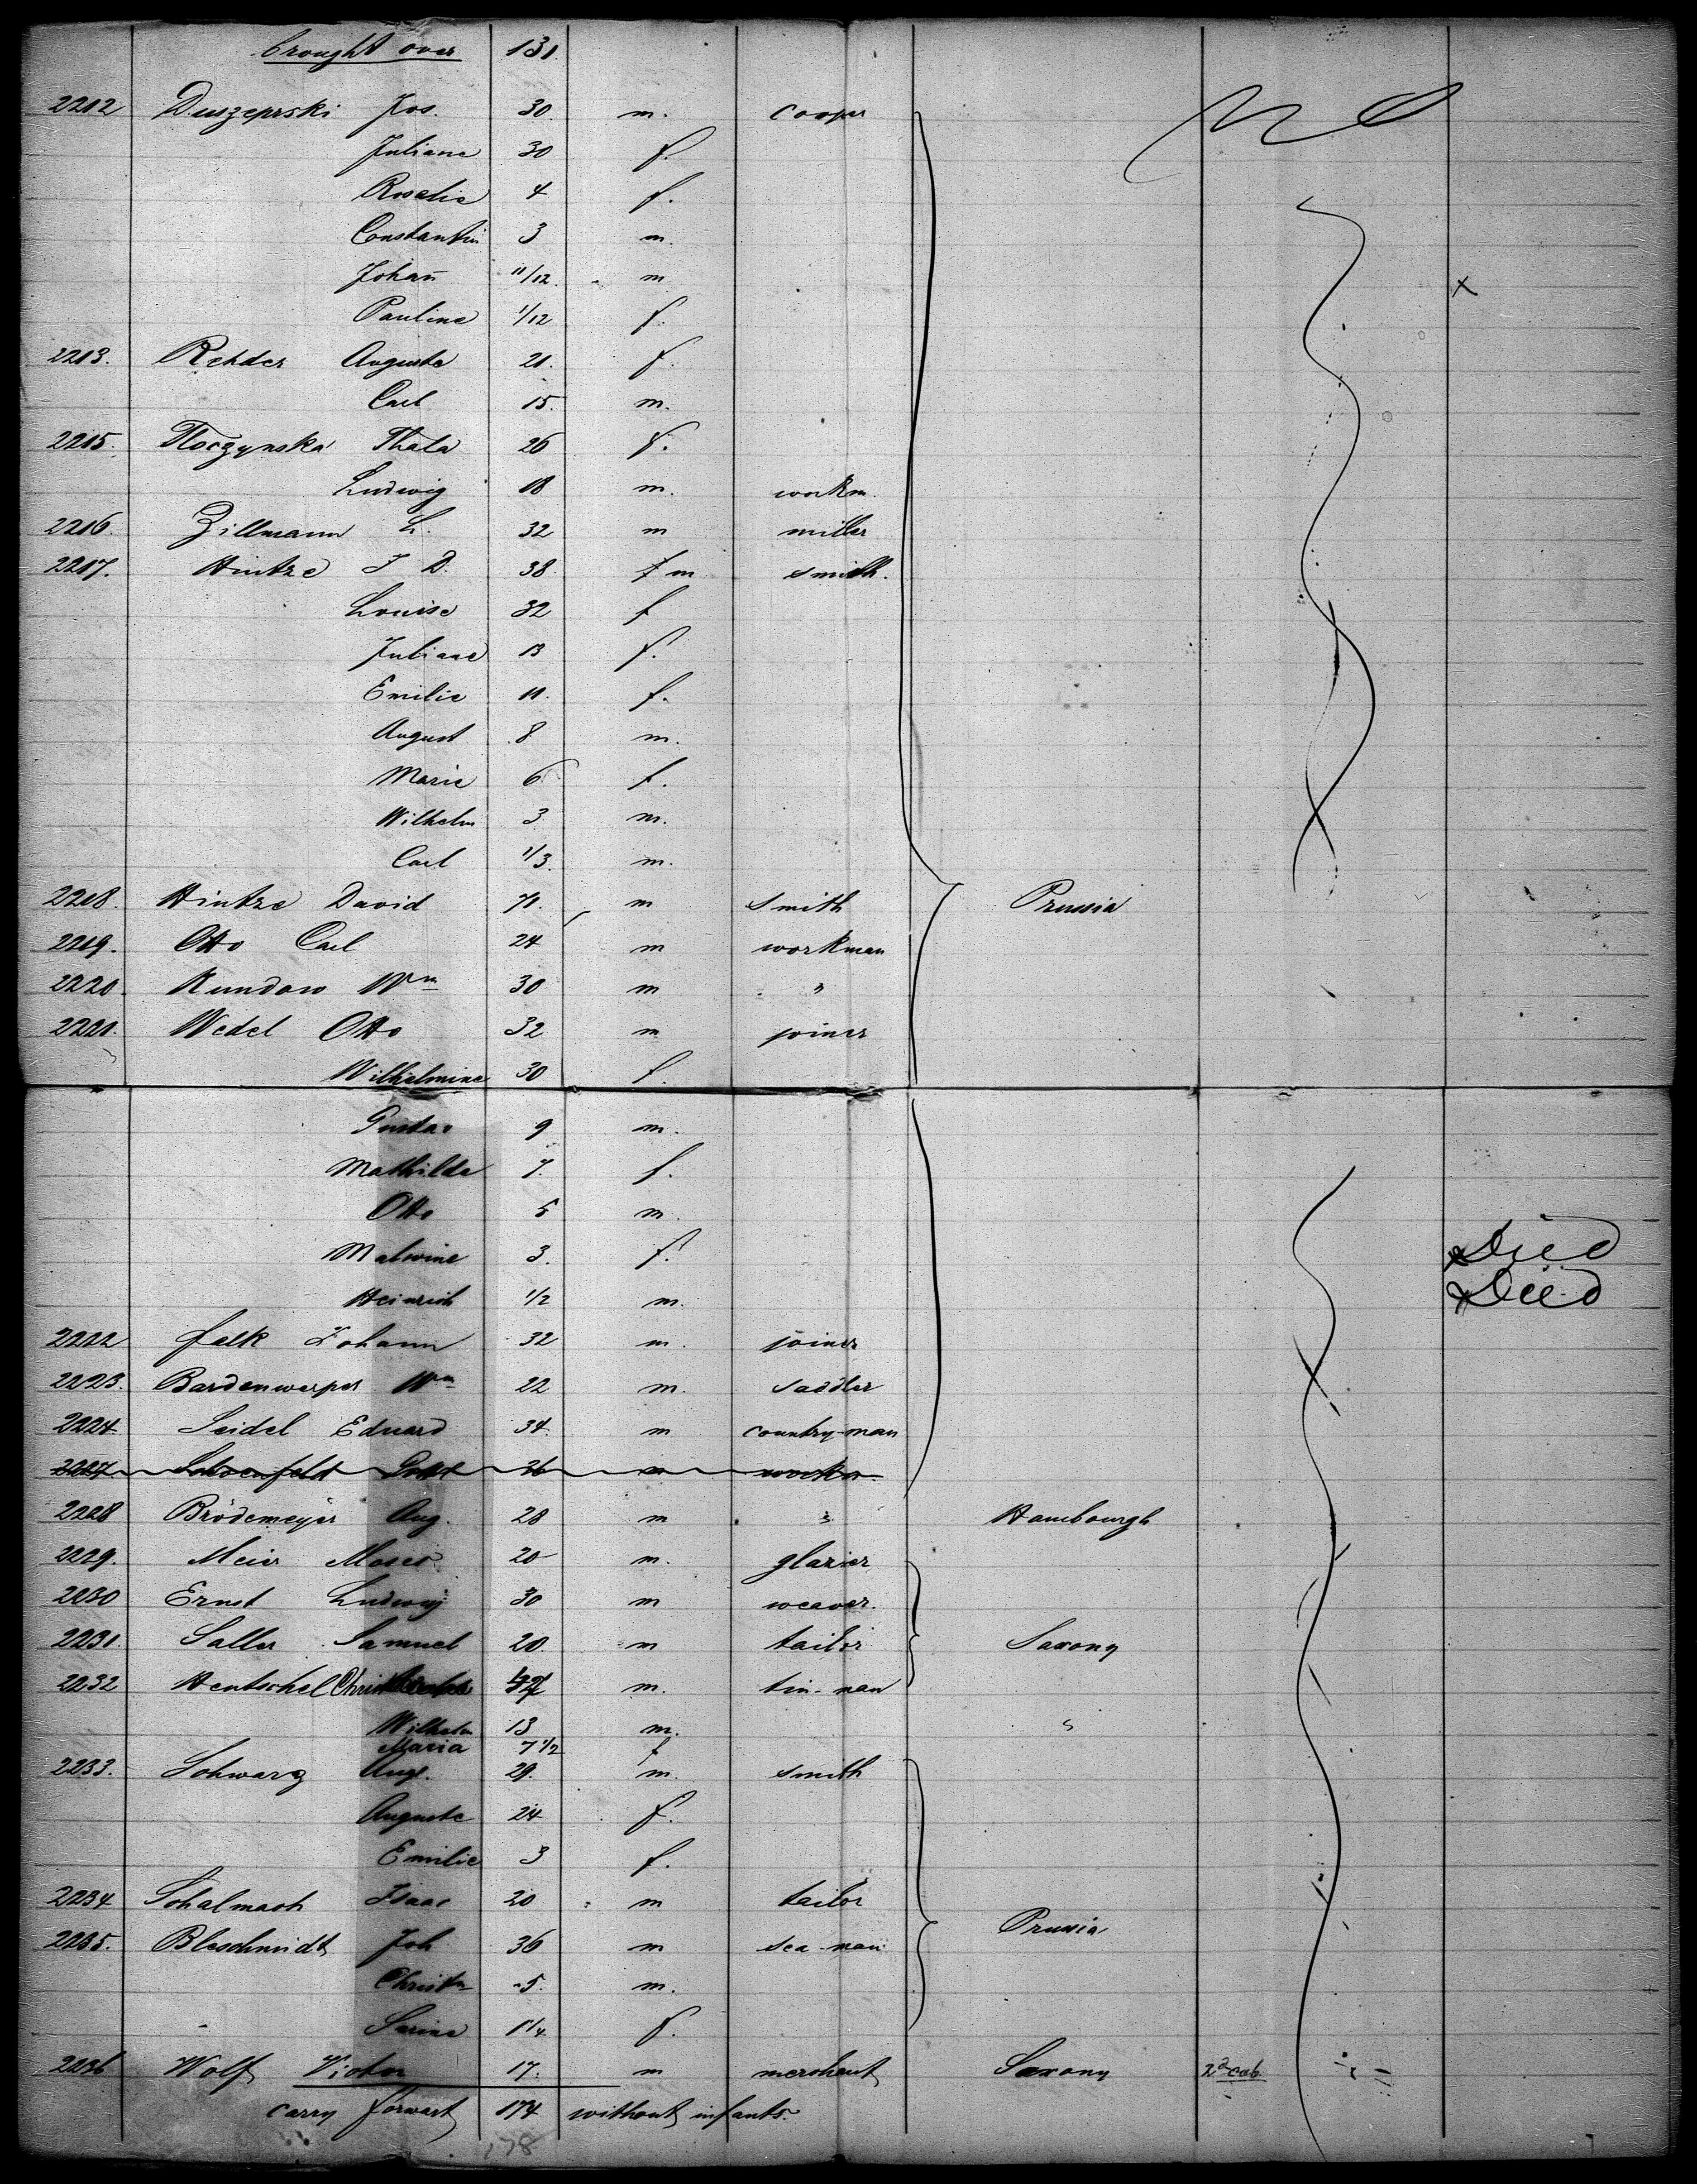 brought over 131.
2212 Duszeprski Jos. 30. m. cooper
Juliane 30 f.
Rosalie 4 f.
Constantin 3 m.
Johan̄ 11/12. m
Pauline 1/12 f.
2213. Rehder Auguste 21. f.
Carl 15. m.
2215. Floczynska Thala 26 f.
Ludwig 18 m. workm.
2216. Zillmann L. 32 m miller
2217. Hintze J D. 38. m smith.
Louise 32 f
Juliane 13 f.
Emilie 11. f.
August 8 m.
Marie 6 f.
Wilhelm 3 m.
Carl 1/3. m.
2218. Hintze David 71. m smith Prussia
2219. Otto Carl 24 m workman
2220. Kundow Wm 30 m "
2221. Wedel Otto 32 m joiner
Wilhelmine 30 f.
Gustav 9 m.
Mathilde 7. f.
Otto 5 m.
Malwine 3. f. Died
Heinrich 1/2 m. Died
2222 Falk Johann 32 m. joiner
2223. Bardenwerper Wm 22 m. saddler
2224 Seidel Eduard 34 m country-man
2227 26 m workm.
2228 Brödemeyer Aug. 28 m " Hambourgh
2229. Meier Moses 20 m. glazier
2230 Ernst Ludwig 30 m weaver.
2231. Saller Samuel 20. m tailor Saxony
2232 Hentschel Christ m. tin-man
Wilhelm 13 m. "
Maria 7 1/2 f
2233. Schwarz Aug. 29. m. smith
Auguste 24 f.
Emilie 3 f.
2234 Schalmach Isaac 20 m tailor
2235. Bleschmidt Joh 36 m sea-man Prussia
Christn 5. m.
Sarine 1 1/4. f.
2236 Wolf Victor 17. m merchant Saxony 2d cab.
carry forwart 174 without infants.
178